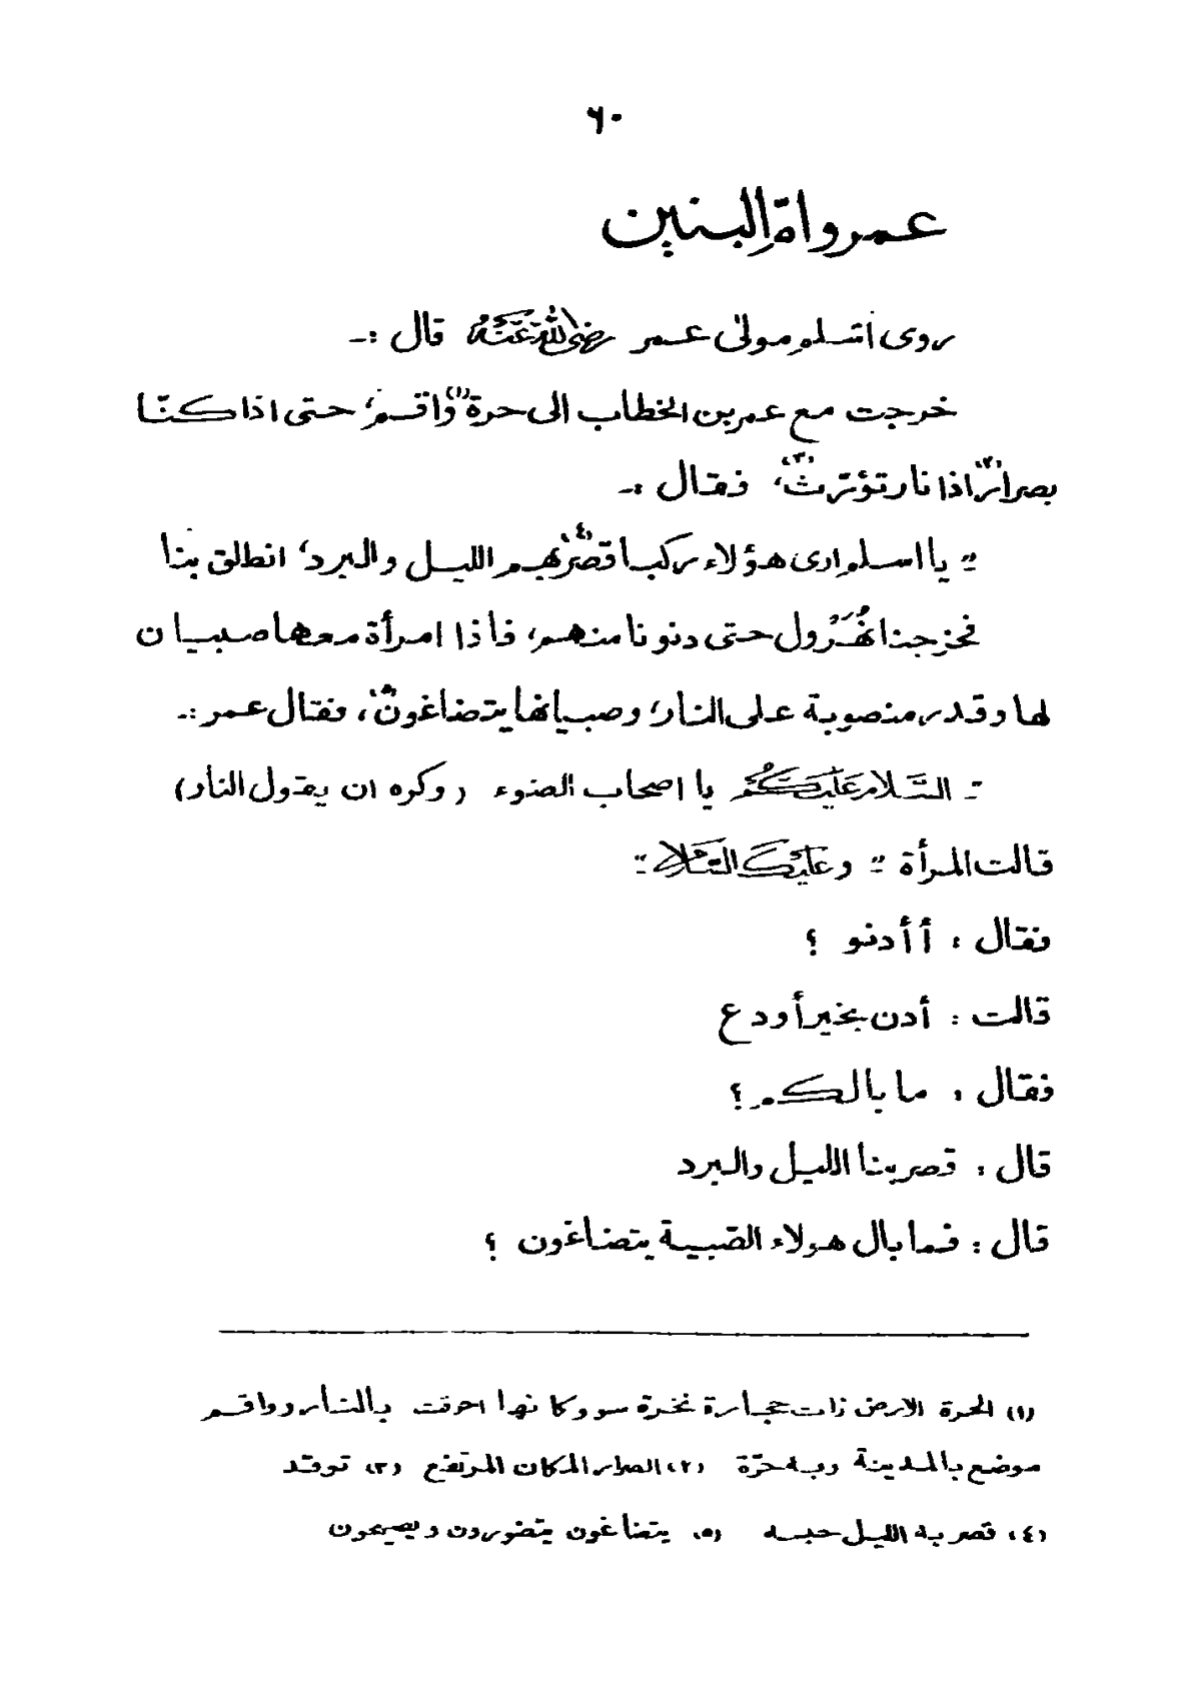 ٦٠
عمر وام البنين
روى أسلم مولى عمر رضى الله عنه قال :-
خرجت مع عمر بن الخطاب الى حرة (١) واقم، حتى اذا كنا
بصرار (٢) اذا نار تؤرث (٣)، فقال :-
- يا اسلم ارى هؤلاء ركبا قصر بهم (٤) الليل والبرد، انطلق بنا
فخرجنا نُهَرْول حتى دنونا منهم، فاذا امرأة معها صبيان
لها وقدر منصوبة على النار، وصبيانها يتضاغون (٥)، فقال عمر :-
- السَّلام عَلَيْكُم يا اصحاب الضوء (وكره ان يقول النار)
قالت المرأة :- وعليك السلام :-
فقال : أأدنو ؟
قالت : أدن بخير أو دع
فقال : ما بالكم ؟
قال : قصر بنا الليل والبرد
قال : فما بال هولاء الصبية يتضاغون ؟
(١) الحرة الارض ذات حجارة نخرة سود كانها احرقت بالنار وواقم
موضع بالمدينة وبه حرّة (٢) الصرار المكان المرتفع (٣) توقد
(٤) قصر به الليل حبسه (٥) يتضاغون يتضورون ويصيحون